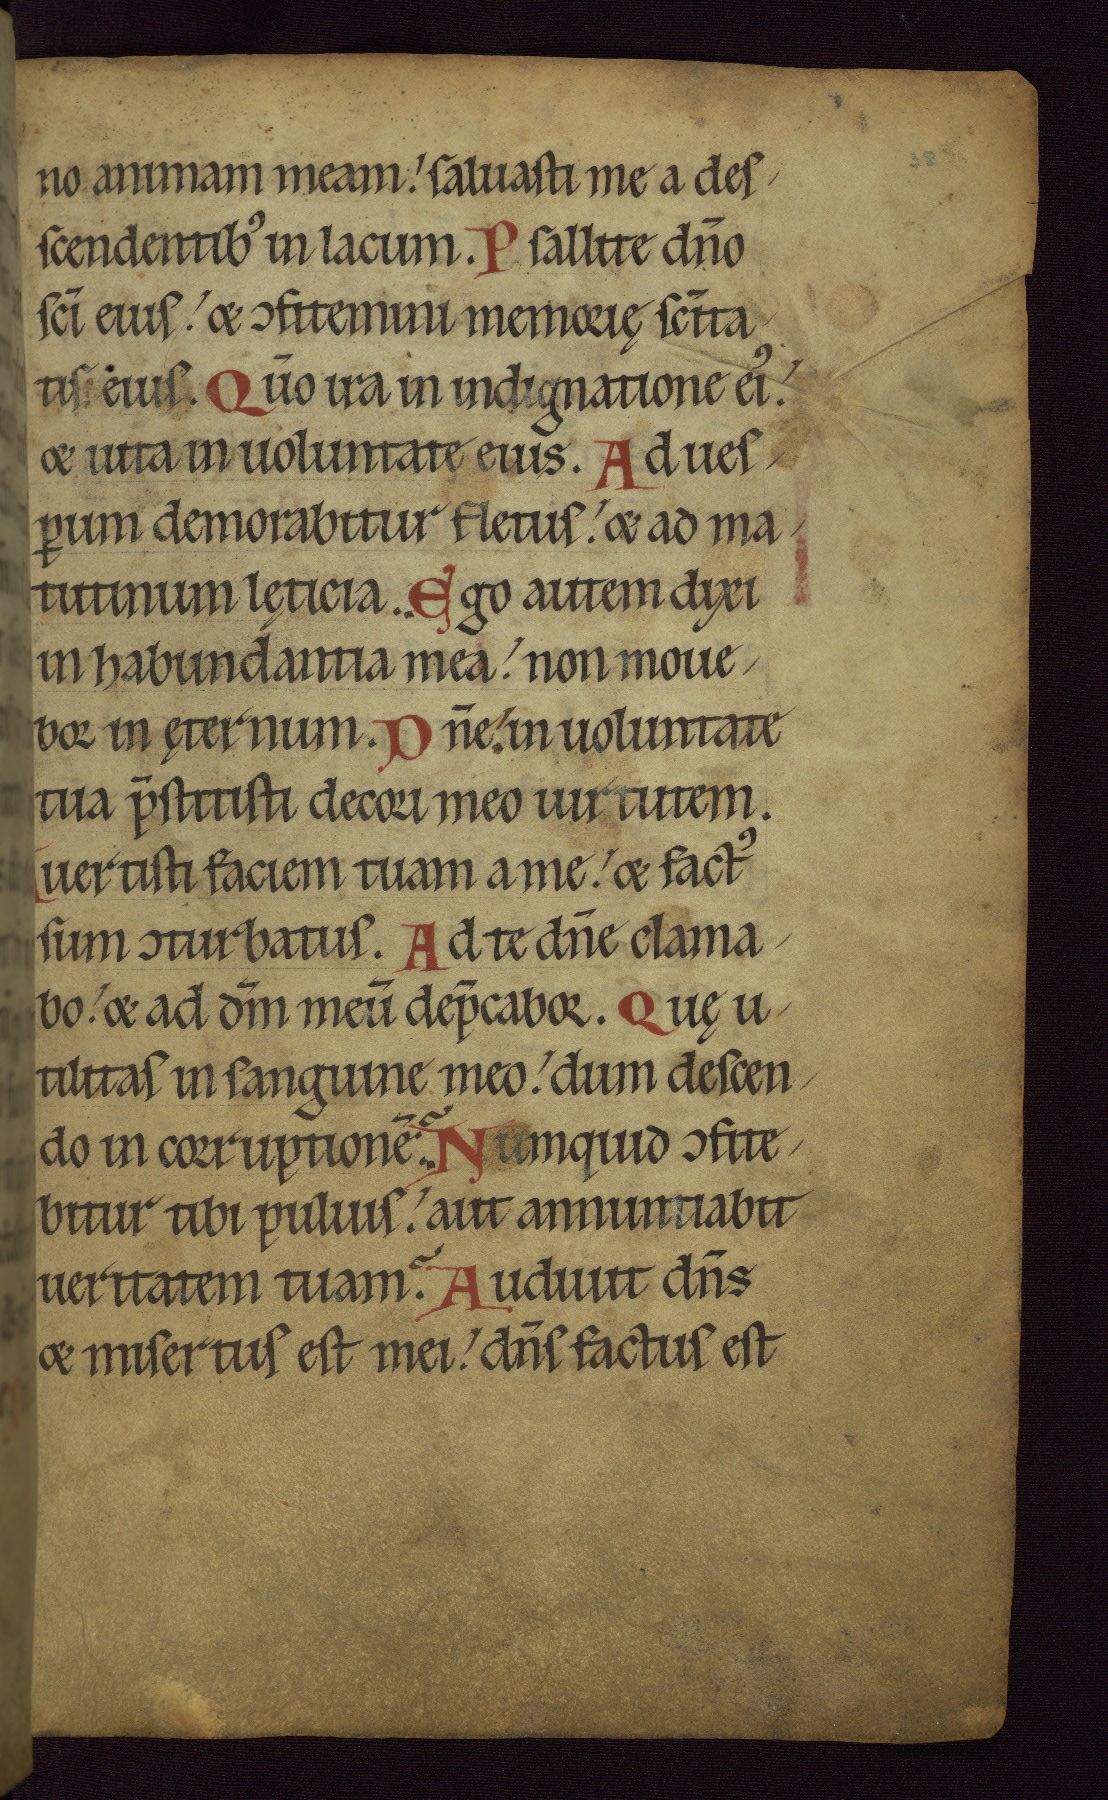 no animam meam! saluasti me a des-
scendentibꝰ in lacum. Psallite dn̄o
scī eius! & ↄfitemini memorię scīta-
tis eius. Qūo ira in indignatione eiꝰ!
& uita in uoluntate eius. Ad ues-
ꝑum demorabitur fletus! & ad ma-
tutinum lęticia. Ego autem dixi
in habundantia mea! non moue-
bor in ęternum. Dn̄e! in uoluntate
tua p̄stitisti decori meo uirtutem.
uertisti faciem tuam a me! & factꝰ
sum ↄturbatus. Ad te dn̄e clama-
bo! & ad dm̄ meū dep̄cabor. Quę u-
tilitas in sanguine meo! dum descen-
do in corruptionē? Numquid ↄfite-
bitur tibi puluis! aut annuntiabit
ueritatem tuam? Audiuit dn̄s
& misertus est mei! dn̄s factus est